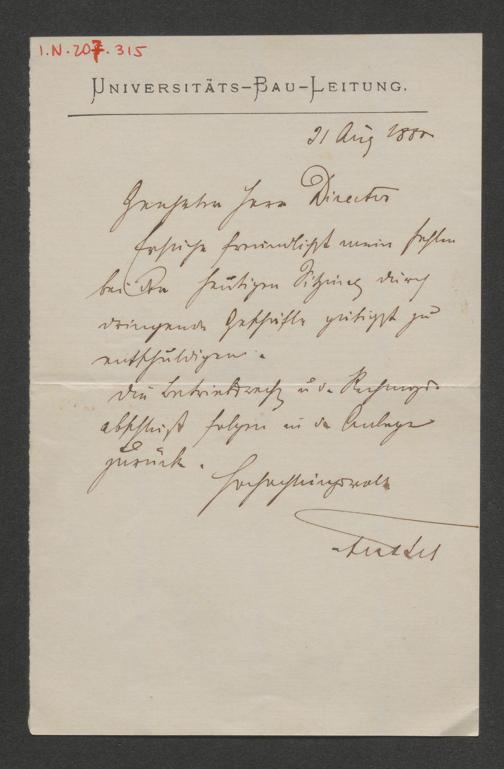 I.N. 207.315
UNIVERSITÄTS-BAU-LEITUNG.
21 Aug 1880
Geehrter Herr Director
Ersuche freundlichst mein Fehlen
bei der heutigen Sitzung durch
dringende Geschäfte gütigst zu
entschuldigen.
Die u. Rechnungs-
abschluß folgen in der Anlage
zurück.
Hochachtungsvoll
Ferstel